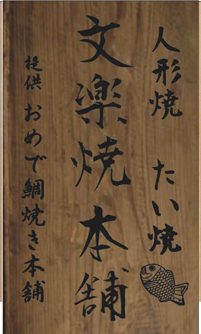 人形焼　たい焼
文楽焼本舗
提供 おめで鯛焼き本舗